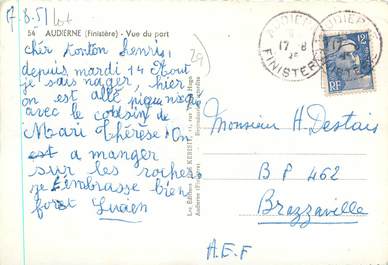 17.8.51
54 AUDIERNE (Finistère) - Vue du port
cher tonton Henri,
depuis mardi 14 Aout
je sais nager, hier
on est allé piqueniqué
avec le cousin de
Mari Thérèse. On
est a manger
sur les rochers
je t'embrasse bien
fort Lucien
29
Audierne (Finistère)
AUDIERNE
17 - 8
FINISTERE
12F
Monsieur H. Destais
B P 462
Brazzaville
A.E.F